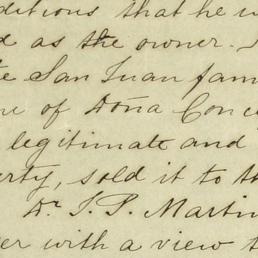 ditions that he w
d as the owner.
te San Juan fam
ne of Doña Conce
legitimate and
erty, sold it to th
Dr. J. P. Martin
er with a view t